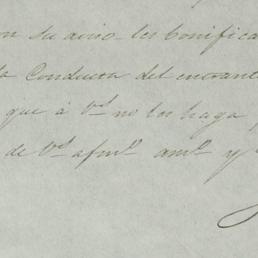 on su aviso les bonifica
la Conducta del entrant
que á V.s no les haga
de V.s afmo. amo. y